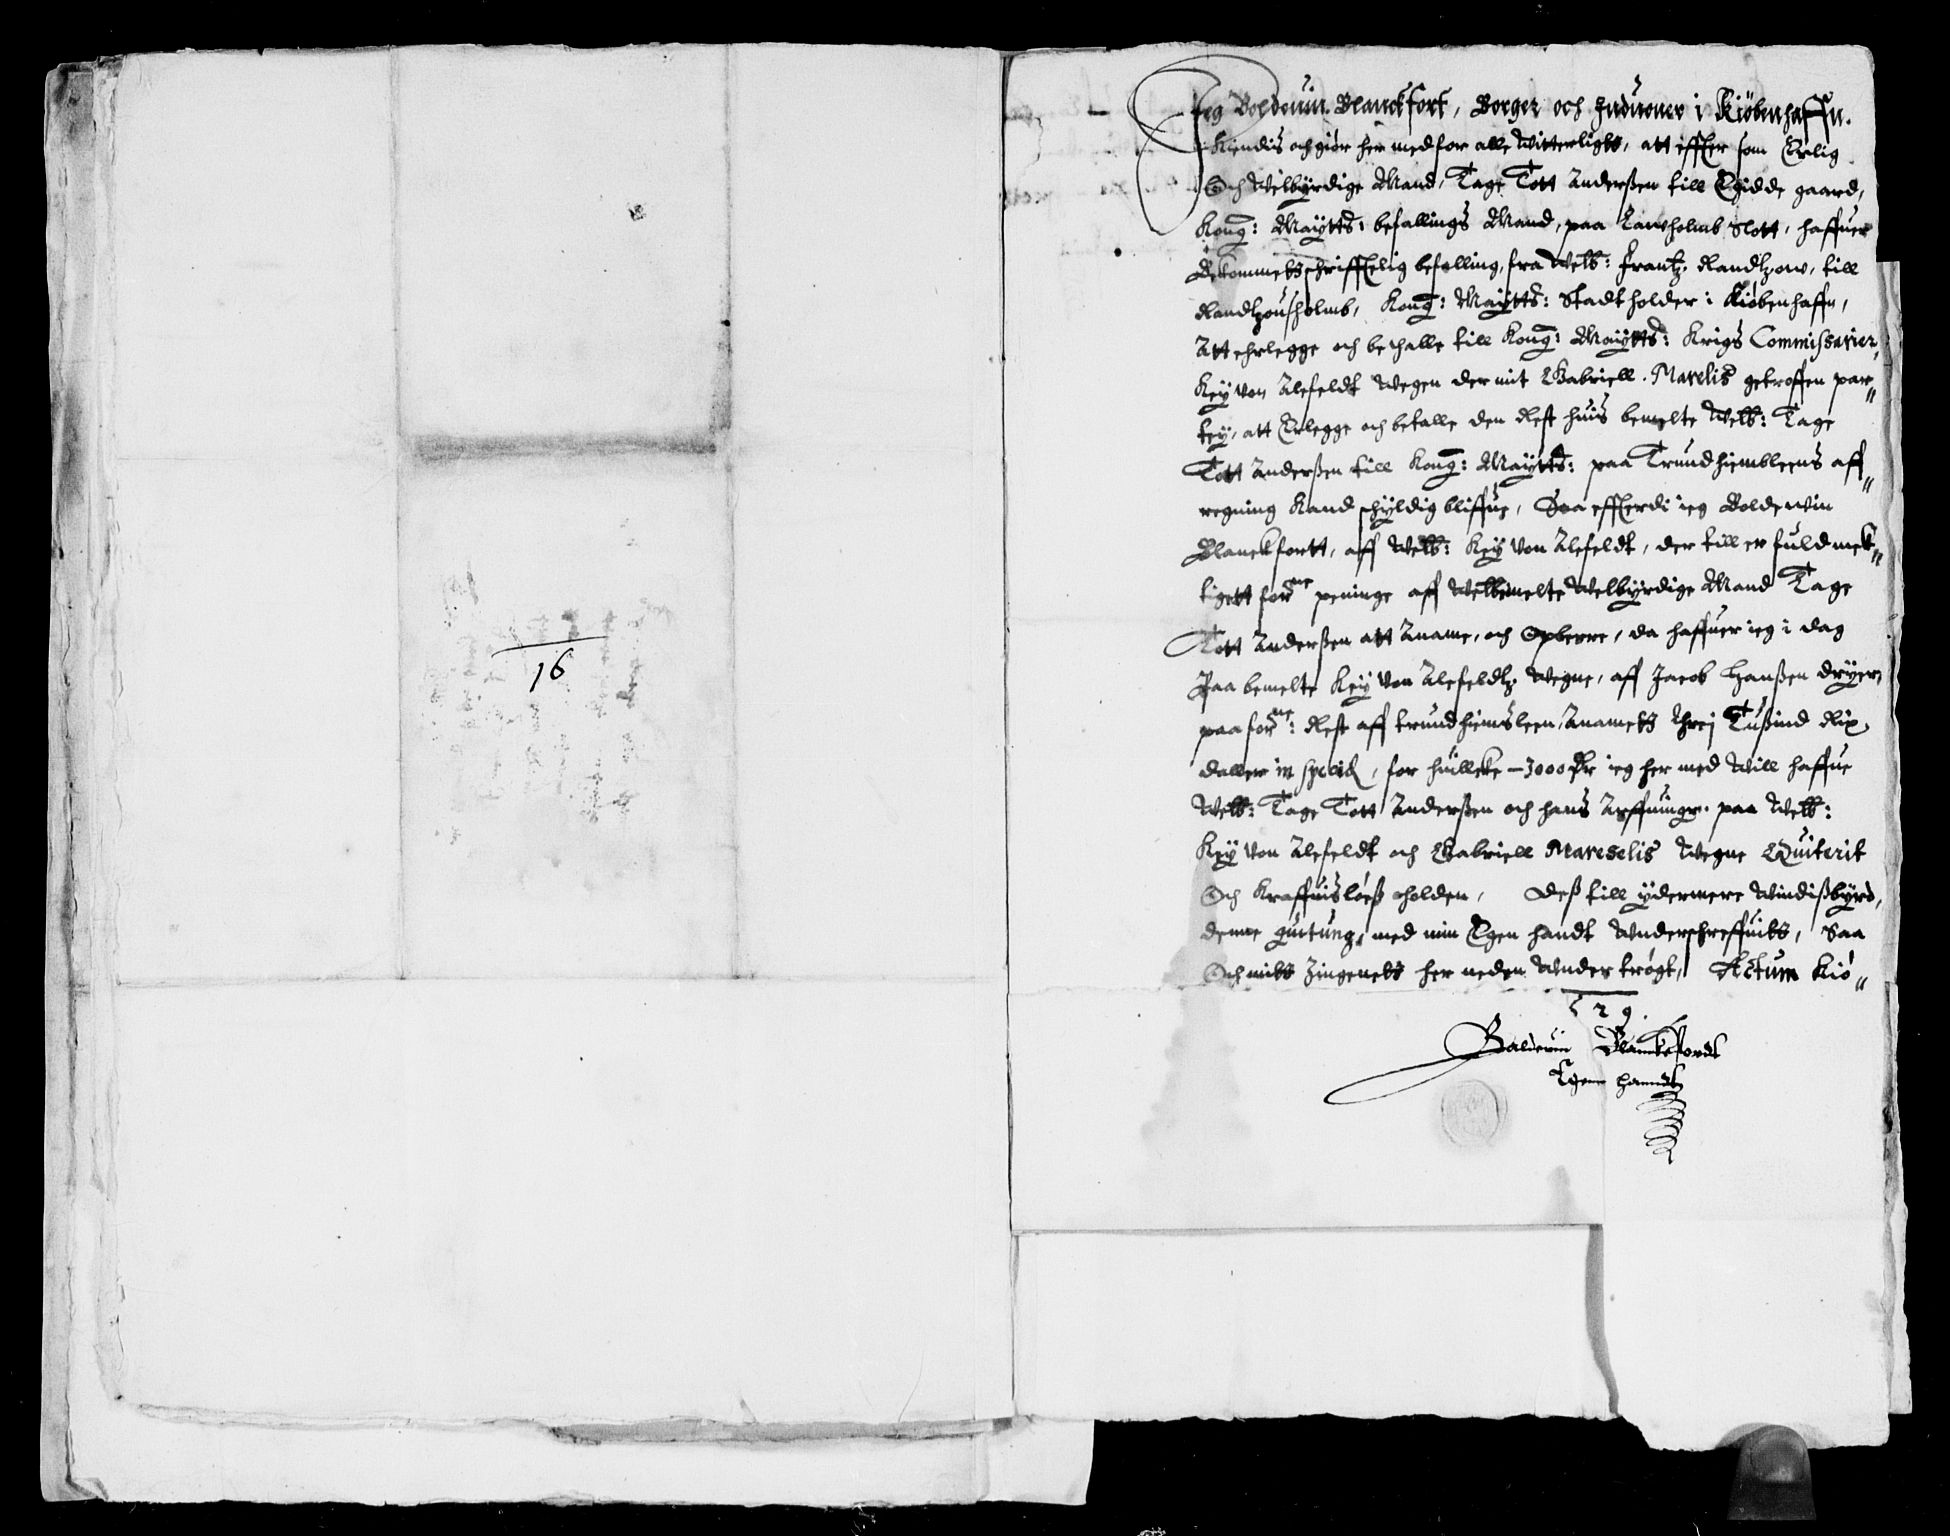 16
Jeg Boldeuin Blanckfort, Borger och Induoner i Kiöbenhaffn.
Kiendis och giör her med for alle Witterligtt, att effter som Erlig
Och Welbÿrdige Mand, Tage Tott Anderßen till Egidde gaard,
Kong: Maÿtts: befallings Mand, paa Lawholmb Slott, haffuer
Bekommett schrifftelig befalling, fra Welb: Frantz Randtzow, till
Randtzousholmb, Kong: Maÿtts: Stadtholder i Kiöbenhaffn,
Att ehrlegge och bethalle till Kong: Maÿtts: Krigs Commissarier,
Keÿ Von Alefeldt Wegen der mit Gabriell Marelis getroffen par„
teÿ, att Erlegge och betalle den Rest huis bemelte Welb: Tage
Tott Anderßen till Kong: Maÿtts: paa Trundhiembleens aff„
regning Kand schÿldig bliffue, Saa effterdi ieg Boldewin
Blanckfortt, aff Welb: Keÿ Von Alefeldt, der till er fuldmek„
tigett forne peninge aff Welbemelte Welbÿrdige Mand Tage
Tott Anderßen att Aname, och Opberre, da haffuer ieg i dag
Paa bemelte Keÿ Von Alefeldtz Wegne, aff Jacob Hanßen drÿer,
paa forne: Rest aff trundhiemsleen, Anamett Threj Tußind Rix
daller in specie, for huilleke – 3000 Dr ieg her med Will haffue
Welb: Tage Tott Anderßen och hans Arffuinger paa Welb:
Keÿ Von Alefeldt och Gabriell Mareselis Wegne Quiterit
Och Kraffuisløeß holden, Deß till ÿdermere Windißbÿrd,
denne quitung, med min Egen handt Underschreffuitt, Saa
Och mitt Zingenett her neden Under trögt, Actum Kiö„
629.
Balderin Blanckefordt
Egenn hanndt